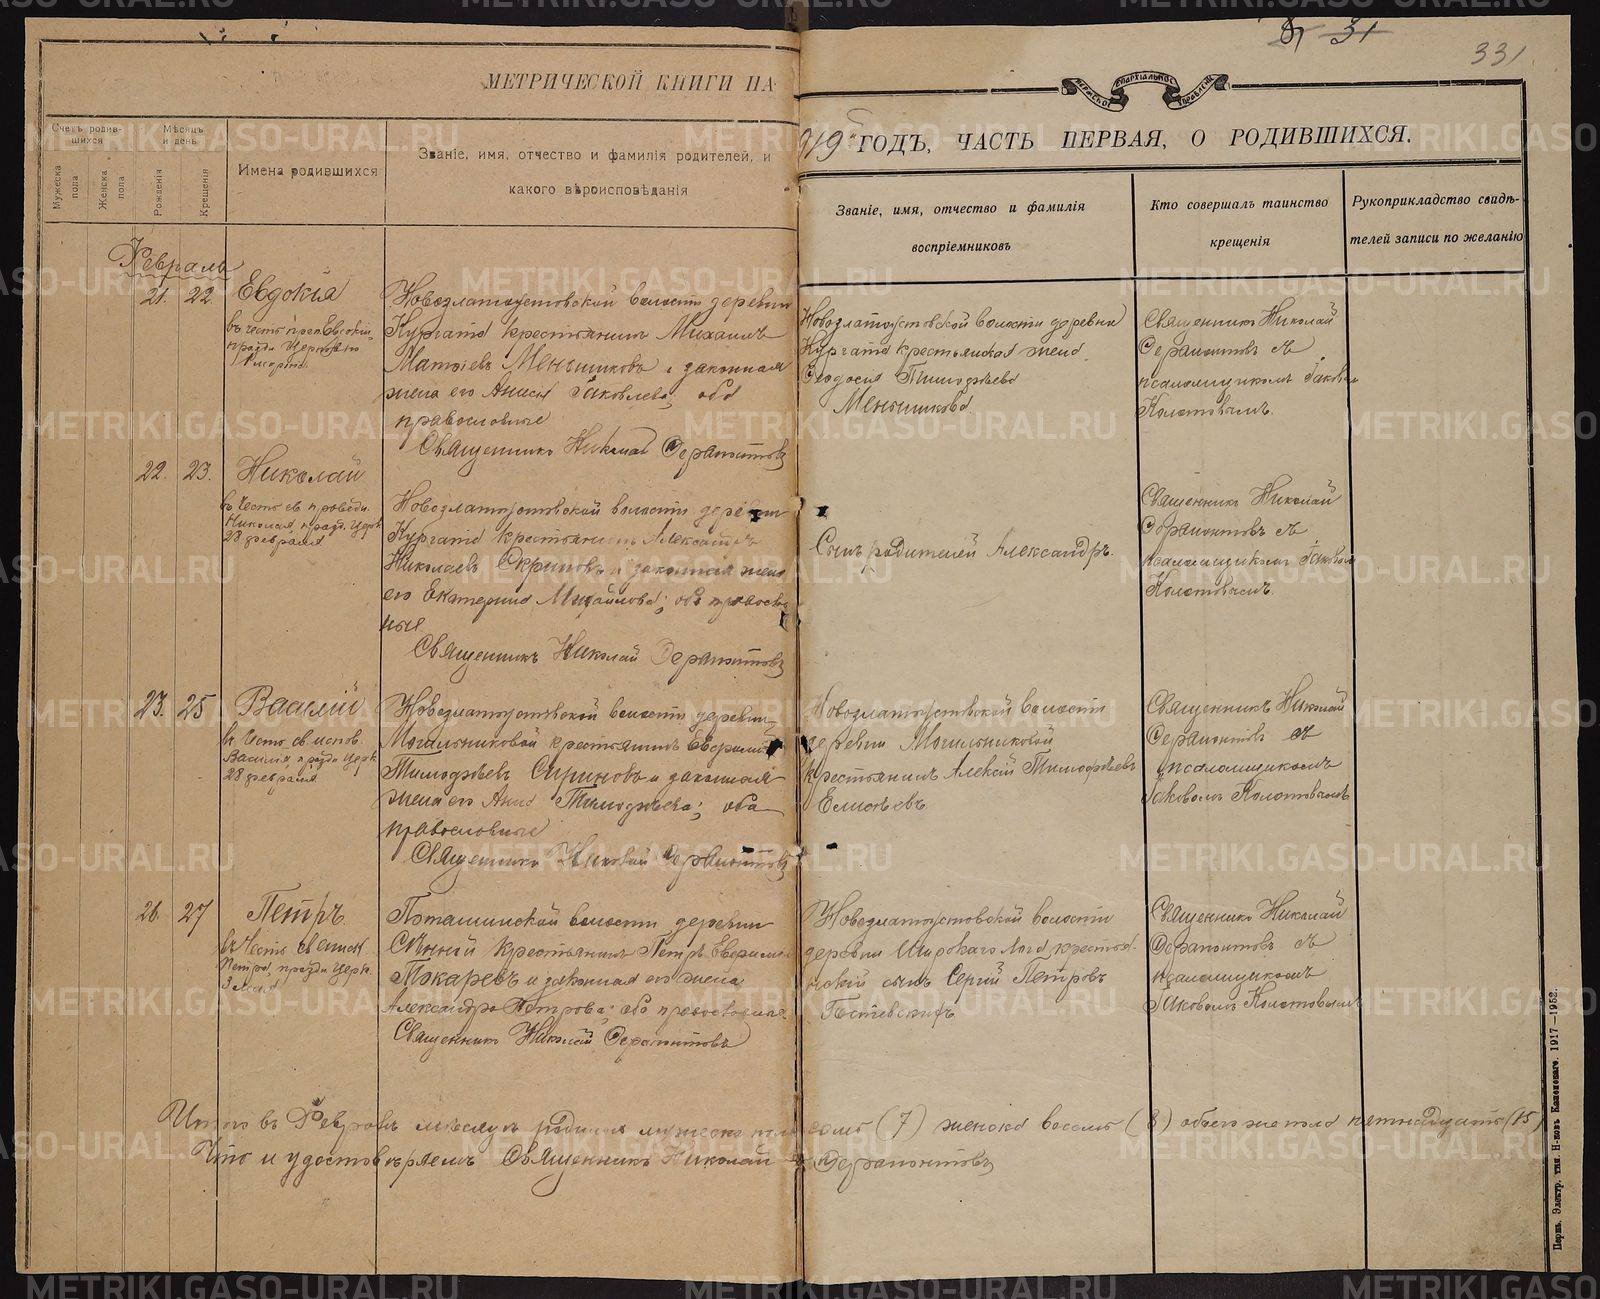 31
331
МЕТРИЧЕСКОЙ КНИГИ НА
ПЕРМСКОЕ ЕПАРХІАЛЬНОЕ УПРАВЛЕНІЕ
919 ГОДЪ, ЧАСТЬ ПЕРВАЯ, О РОДИВШИХСЯ.
Счетъ родив-
шихся
Мужеска пола
Женска пола
Мѣсяцъ
и день
Рожденія
Крещенія
Имена родившихся
Званіе, имя, отчество и фамилія родителей, и
какого вѣроисповѣданія
Званіе, имя, отчество и фамилія
воспріемниковъ
Кто совершалъ таинство
крещенія
Рукоприкладство свидѣ-
телей записи по желанію
Февраль
21. 22. Евдокія
въ честь преп. Евдокіи
празд. Церковію
Новозлатоустовской волости деревни
Кургата крестьянинъ Михаилъ
Матѳіевъ Меньшиковъ и законная
жена его Анисья Іаковлева; оба
православные
Священникъ Николай Ферапонтовъ
Новозлатоустовской волости деревни
Кургата крестьянская жена
Ѳеодосія Тимоѳѣева
Меньшикова.
Священникъ Николай
Ферапонтовъ съ
псаломщикомъ Іаковомъ
Колотовымъ.
22. 23. Николай
въ честь св. праведн.
Николая, празд. Церк.
28 февраля
Новозлатоустовской волости деревни
Кургата крестьянинъ Александръ
Николаевъ Скриповъ и законная жена
его Екатерина Михайлова; оба православ
ные
Священникъ Николай Ферапонтовъ
Сынъ родителей Александръ.
Священникъ Николай
Ферапонтовъ съ
псаломщикомъ Іаковомъ
Колотовымъ.
23. 25 Василій
въ честь св. испов.
Василія, празд. Церк.
28 февраля
Новозлатоустовской волости деревни
Могильниковой крестьянинъ Евфимій
Тимоѳѣевъ и законная
жена его Анна Тимоѳѣева; оба
православные
Священникъ Николай Ферапонтовъ
Новозлатоустовской волости
деревни Могильниковой
крестьянинъ Алексій Тимоѳѣевъ
Елисѣевъ.
Священникъ Николай
Ферапонтовъ съ
псаломщикомъ
Іаковомъ Колотовымъ
26. 27 Петръ
въ честь св. еписк.
Петра, празд. Церк.
3 мая
Поташинской волости деревни
Сѣнной крестьянинъ Петръ
Токаревъ и законная его жена
Александра Петрова; оба православные
Священникъ Николай Ферапонтовъ
Новозлатоустовской волости
деревни Широкаго Лога крестьян
скій сынъ Сергій Петровъ
Священникъ Николай
Ферапонтовъ съ
псаломщикомъ
Іаковомъ Колотовымъ
Итого въ Февралѣ мѣсяцѣ родилось мужеска пола семь (7) женска восемь (8) обоего же пола пятнадцать (15)
Что и удостовѣряемъ Священникъ Николай Ферапонтовъ
Пермь. Электр. тип. Н-ковъ Каменскаго. 1917—1952.
METRIKI.GASO-URAL.RU